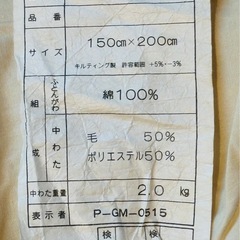 品番
サイズ 150㎝×200㎝
キルティング製 許容範囲 +5%・-3%
組成 ふとんがわ 綿100%
中わた 毛 50%
ポリエステル50%
中わた重量 2.0 kg
表示者 P-GM-0515
検 検